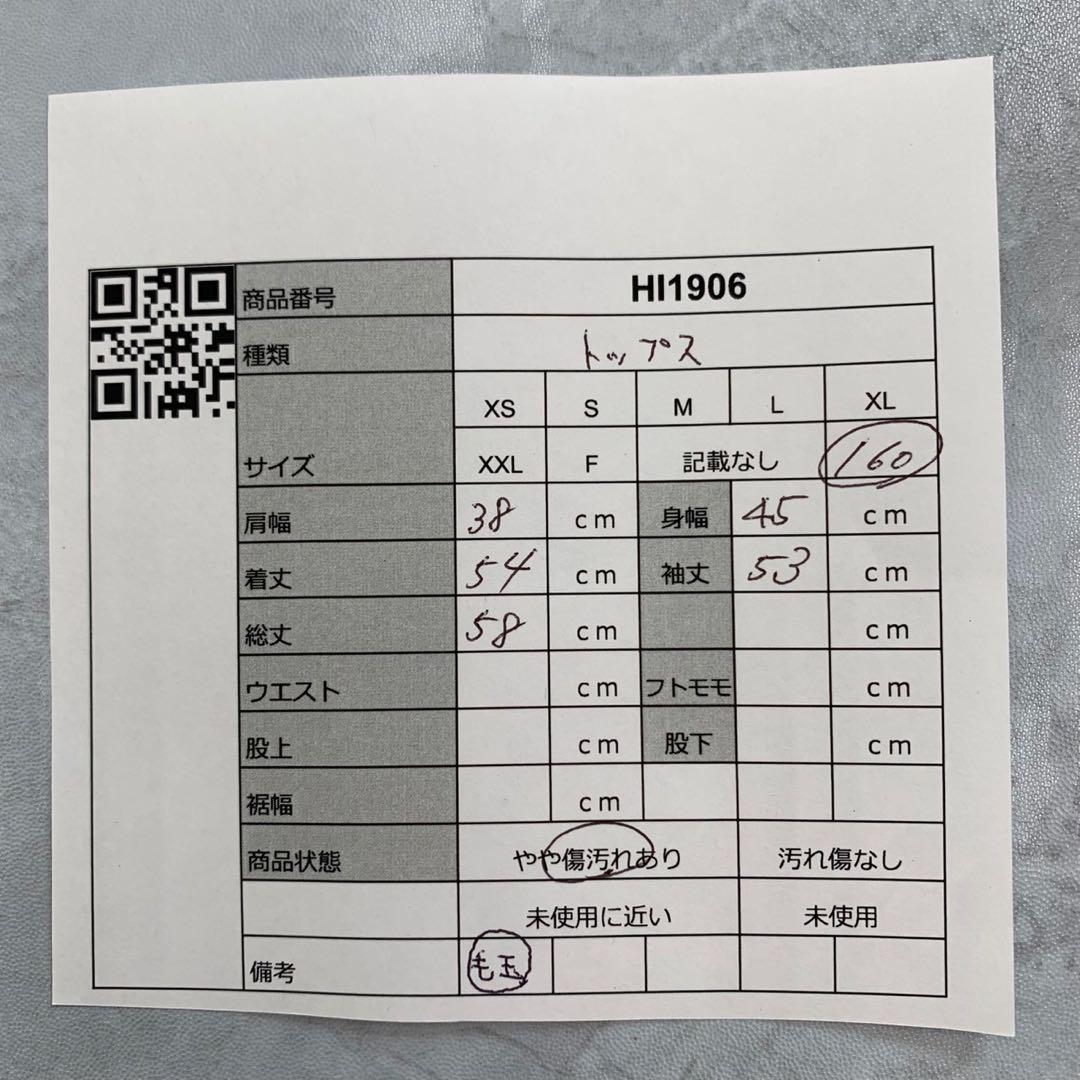 商品番号 HI1906
種類 トップス
XS S M L XL
サイズ XXL F 記載なし 160
肩幅 38 cm 身幅 45 cm
着丈 54 cm 袖丈 53 cm
総丈 58 cm cm
ウエスト cm フトモモ cm
股上 cm 股下 cm
裾幅 cm
商品状態 やや傷汚れあり 汚れ傷なし
未使用に近い 未使用
備考 毛玉